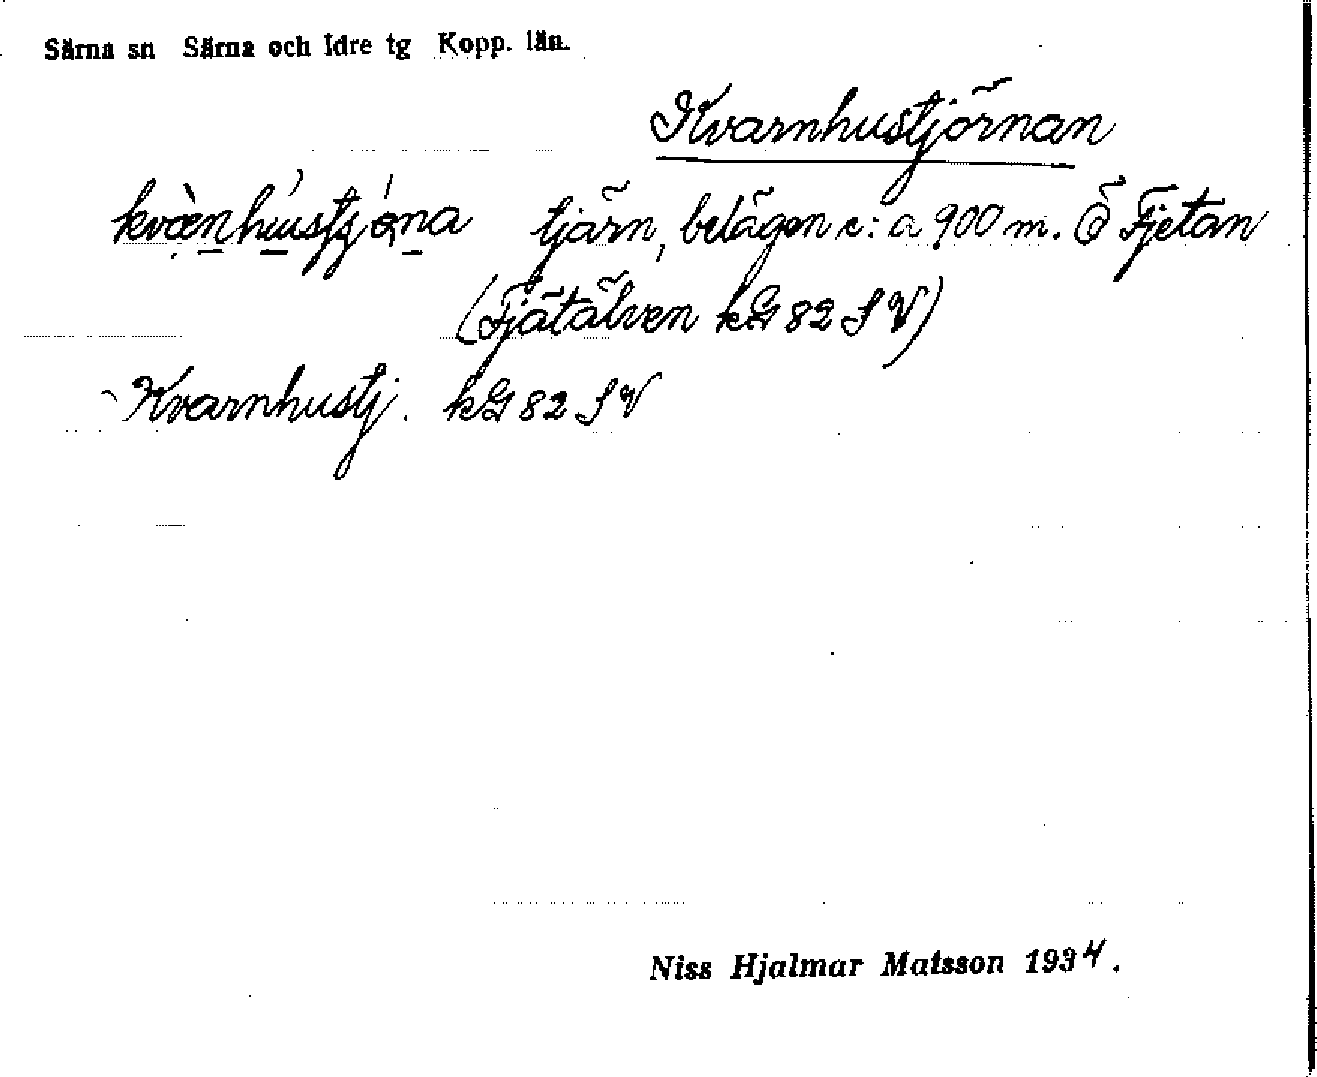 Särna sn Särna och Idre tg Kopp. län.
Kvarnhustjörnan
tjärn, belägen c:a 900 m. Ö Fjetan
(Fjätälven kG 82 S V)
Kvarnhustj. kG 82 S V
Niss Hjalmar Matsson 1934.